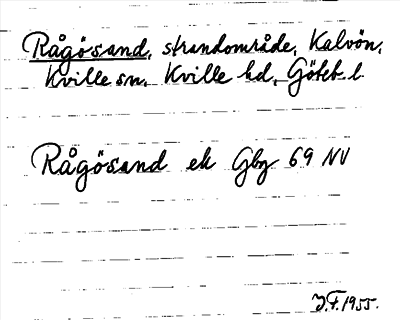 Rågösand, strandområde, Kalvön,
Kville sn. Kville hd. Göteb. l.
Rågösand ek Gbg 69 NV
J.F. 1955.